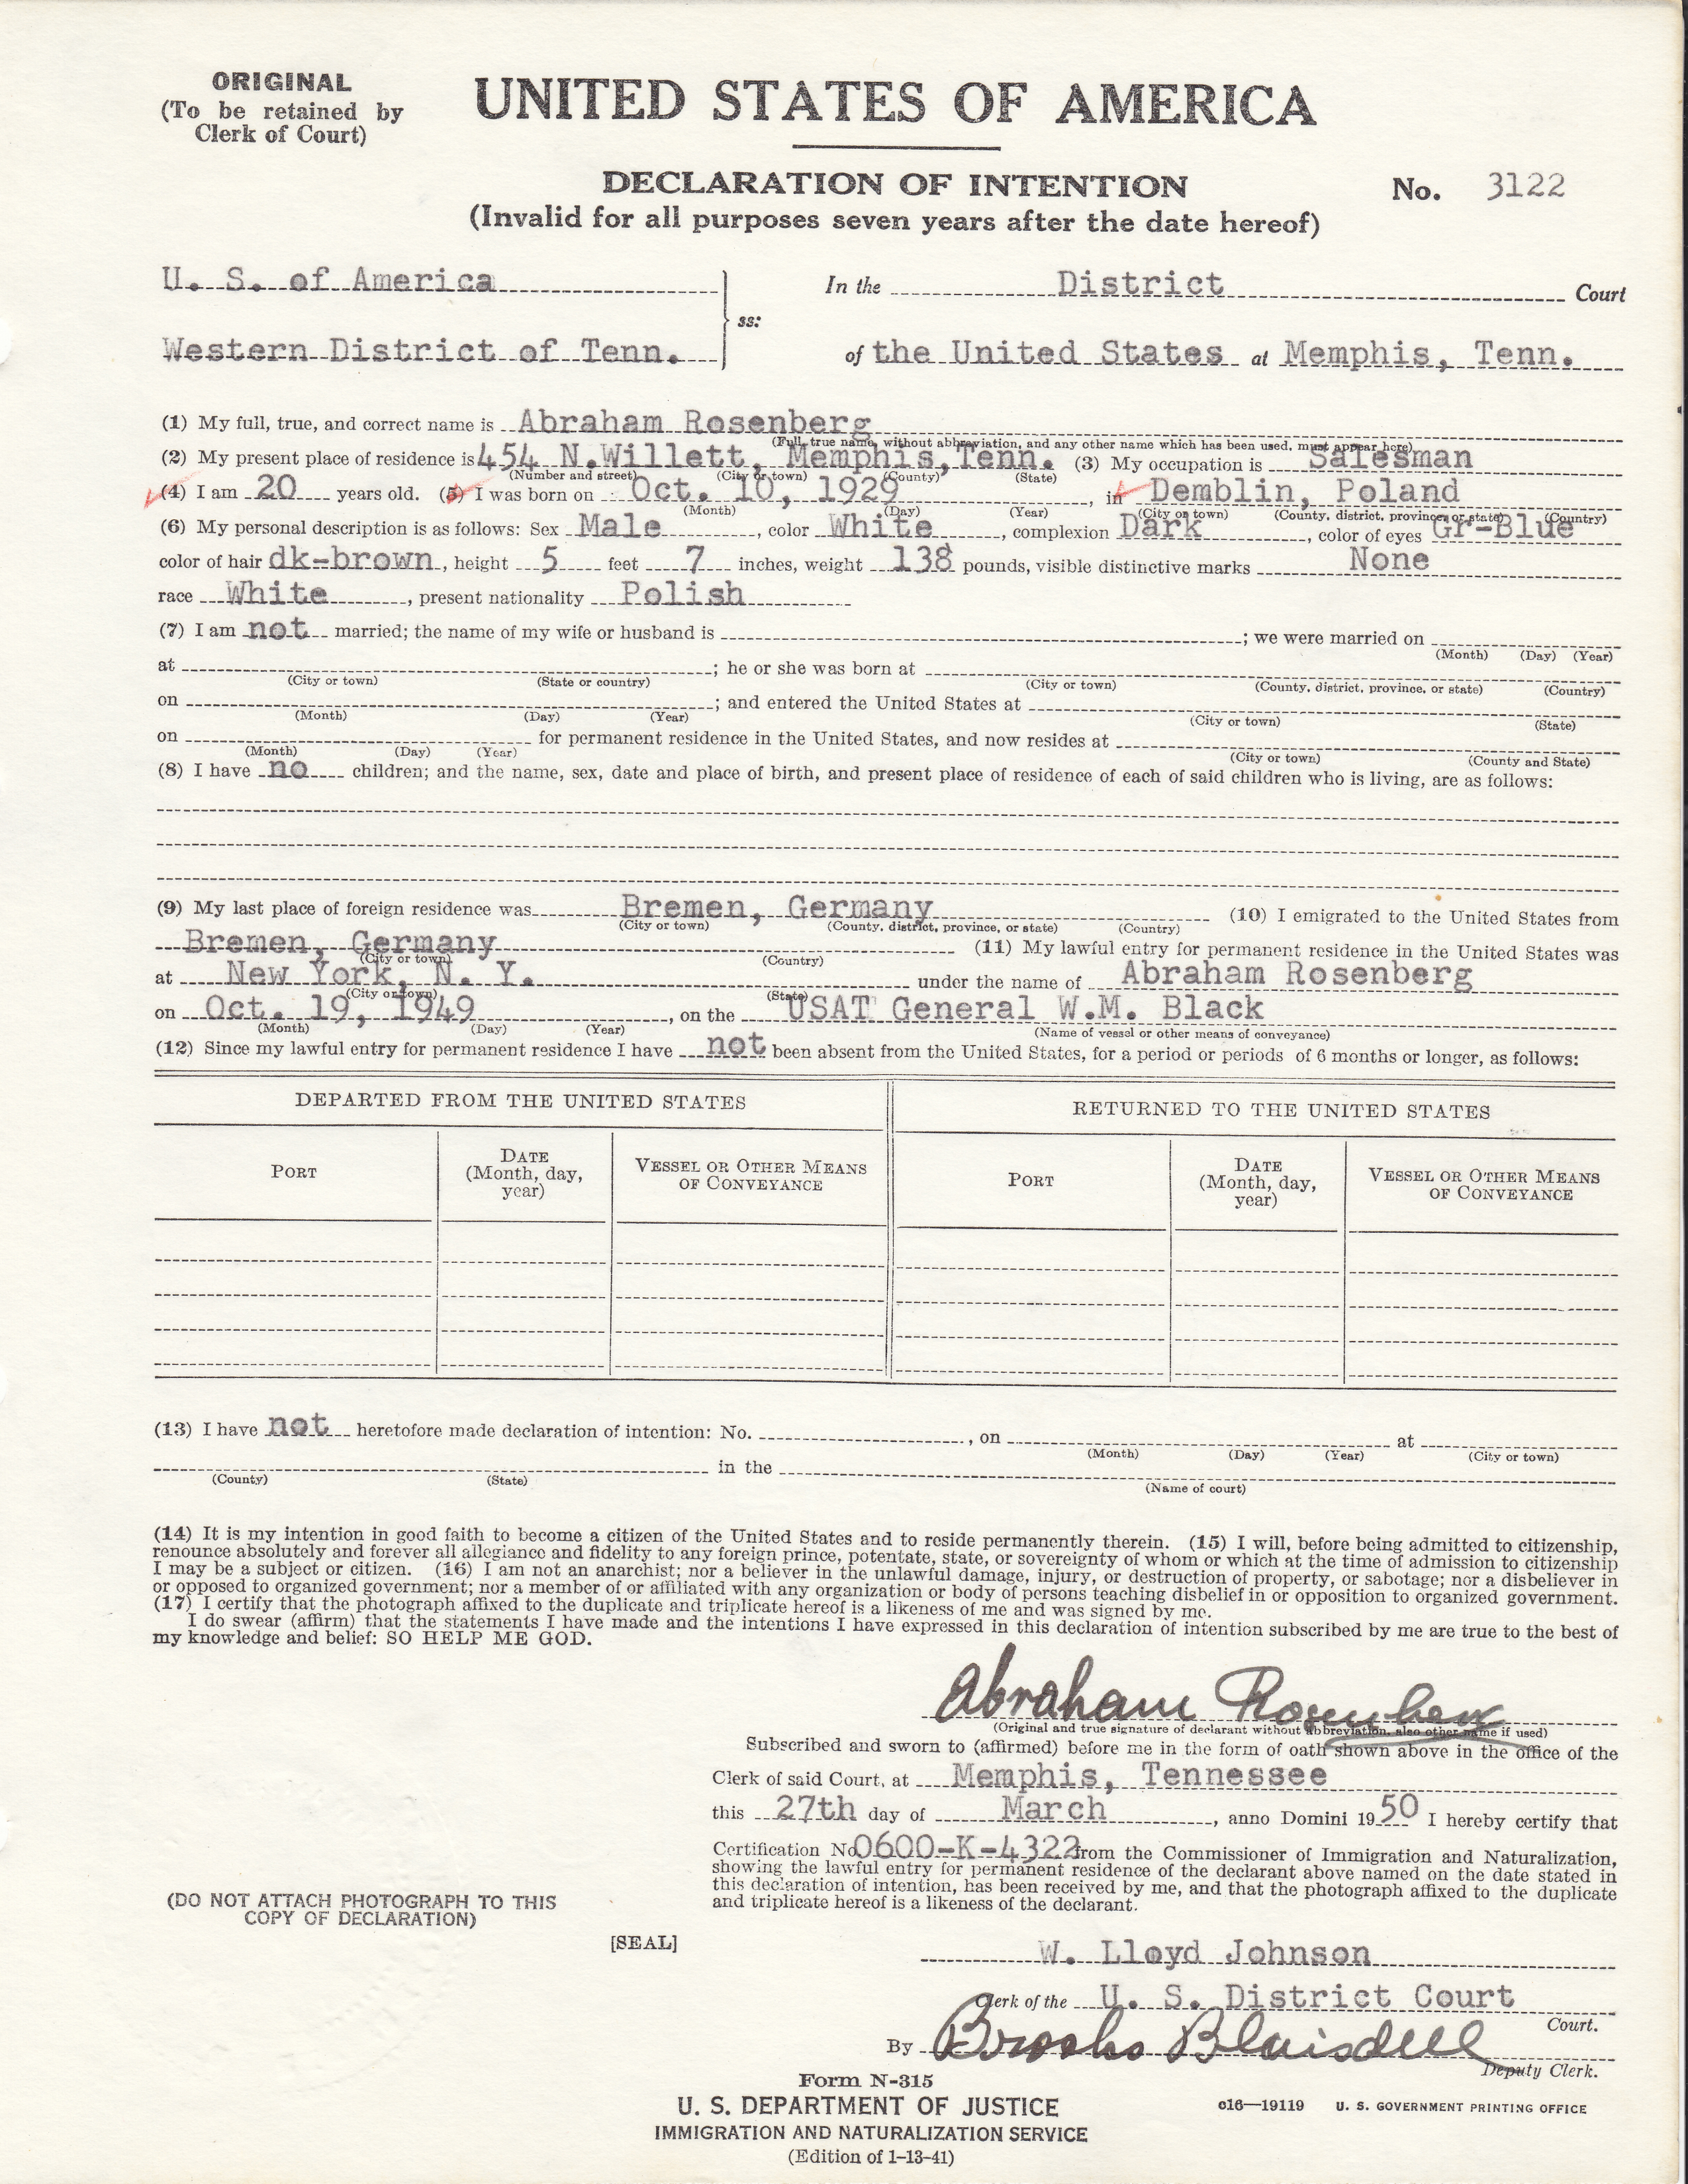 ORIGINAL
(To be retained by
Clerk of Court)
UNITED STATES OF AMERICA
DECLARATION OF INTENTION
(Invalid for all purposes seven years after the date hereof)
No. 3122
U. S. of America
Western District of Tenn.
ss:
In the District Court
of the United States at Memphis, Tenn.
(1) My full, true, and correct name is Abraham Rosenberg
(Full, true name, without abbreviation, and any other name which has been used, must appear here)
(2) My present place of residence is 454 N.Willett, Memphis,Tenn. (3) My occupation is Salesman
(Number and street) (City or town) (County) (State)
(4) I am 20 years old. (5) I was born on Oct. 10, 1929, in Demblin, Poland
(Month) (Day) (Year) (City or town) (County, district, province, or state) (Country)
(6) My personal description is as follows: Sex Male, color White, complexion Dark, color of eyes Gr-Blue
color of hair dk-brown, height 5 feet 7 inches, weight 138 pounds, visible distinctive marks None
race White, present nationality Polish
(7) I am not married; the name of my wife or husband is ; we were married on
(Month) (Day) (Year)
at ; he or she was born at
(City or town) (State or country) (City or town) (County, district, province, or state) (Country)
on ; and entered the United States at
(Month) (Day) (Year) (City or town) (State)
on for permanent residence in the United States, and now resides at
(Month) (Day) (Year) (City or town) (County and State)
(8) I have no children; and the name, sex, date and place of birth, and present place of residence of each of said children who is living, are as follows:
(9) My last place of foreign residence was Bremen, Germany (10) I emigrated to the United States from
(City or town) (County, district, province, or state) (Country)
Bremen, Germany (11) My lawful entry for permanent residence in the United States was
(City or town) (Country)
at New York, N. Y. under the name of Abraham Rosenberg
(City or town) (State)
on Oct. 19, 1949, on the USAT General W.M. Black
(Month) (Day) (Year) (Name of vessel or other means of conveyance)
(12) Since my lawful entry for permanent residence I have not been absent from the United States, for a period or periods of 6 months or longer, as follows:
DEPARTED FROM THE UNITED STATES
RETURNED TO THE UNITED STATES
PORT
DATE
(Month, day,
year)
VESSEL OR OTHER MEANS
OF CONVEYANCE
PORT
DATE
(Month, day,
year)
VESSEL OR OTHER MEANS
OF CONVEYANCE
(13) I have not heretofore made declaration of intention: No. , on at
(Month) (Day) (Year) (City or town)
in the
(County) (State) (Name of court)
(14) It is my intention in good faith to become a citizen of the United States and to reside permanently therein. (15) I will, before being admitted to citizenship,
renounce absolutely and forever all allegiance and fidelity to any foreign prince, potentate, state, or sovereignty of whom or which at the time of admission to citizenship
I may be a subject or citizen. (16) I am not an anarchist; nor a believer in the unlawful damage, injury, or destruction of property, or sabotage; nor a disbeliever in
or opposed to organized government; nor a member of or affiliated with any organization or body of persons teaching disbelief in or opposition to organized government.
(17) I certify that the photograph affixed to the duplicate and triplicate hereof is a likeness of me and was signed by me.
I do swear (affirm) that the statements I have made and the intentions I have expressed in this declaration of intention subscribed by me are true to the best of
my knowledge and belief: SO HELP ME GOD.
Abraham Rosenberg
(Original and true signature of declarant without abbreviation, also other name if used)
Subscribed and sworn to (affirmed) before me in the form of oath shown above in the office of the
Clerk of said Court, at Memphis, Tennessee
this 27th day of March, anno Domini 1950 I hereby certify that
Certification No 0600-K-4322 from the Commissioner of Immigration and Naturalization,
showing the lawful entry for permanent residence of the declarant above named on the date stated in
this declaration of intention, has been received by me, and that the photograph affixed to the duplicate
and triplicate hereof is a likeness of the declarant.
(DO NOT ATTACH PHOTOGRAPH TO THIS
COPY OF DECLARATION)
[SEAL]
W. Lloyd Johnson
Clerk of the U. S. District Court
Court.
By Brooks Blaisdell
Deputy Clerk.
Form N-315
U. S. DEPARTMENT OF JUSTICE
IMMIGRATION AND NATURALIZATION SERVICE
(Edition of 1-13-41)
c16—19119 U. S. GOVERNMENT PRINTING OFFICE